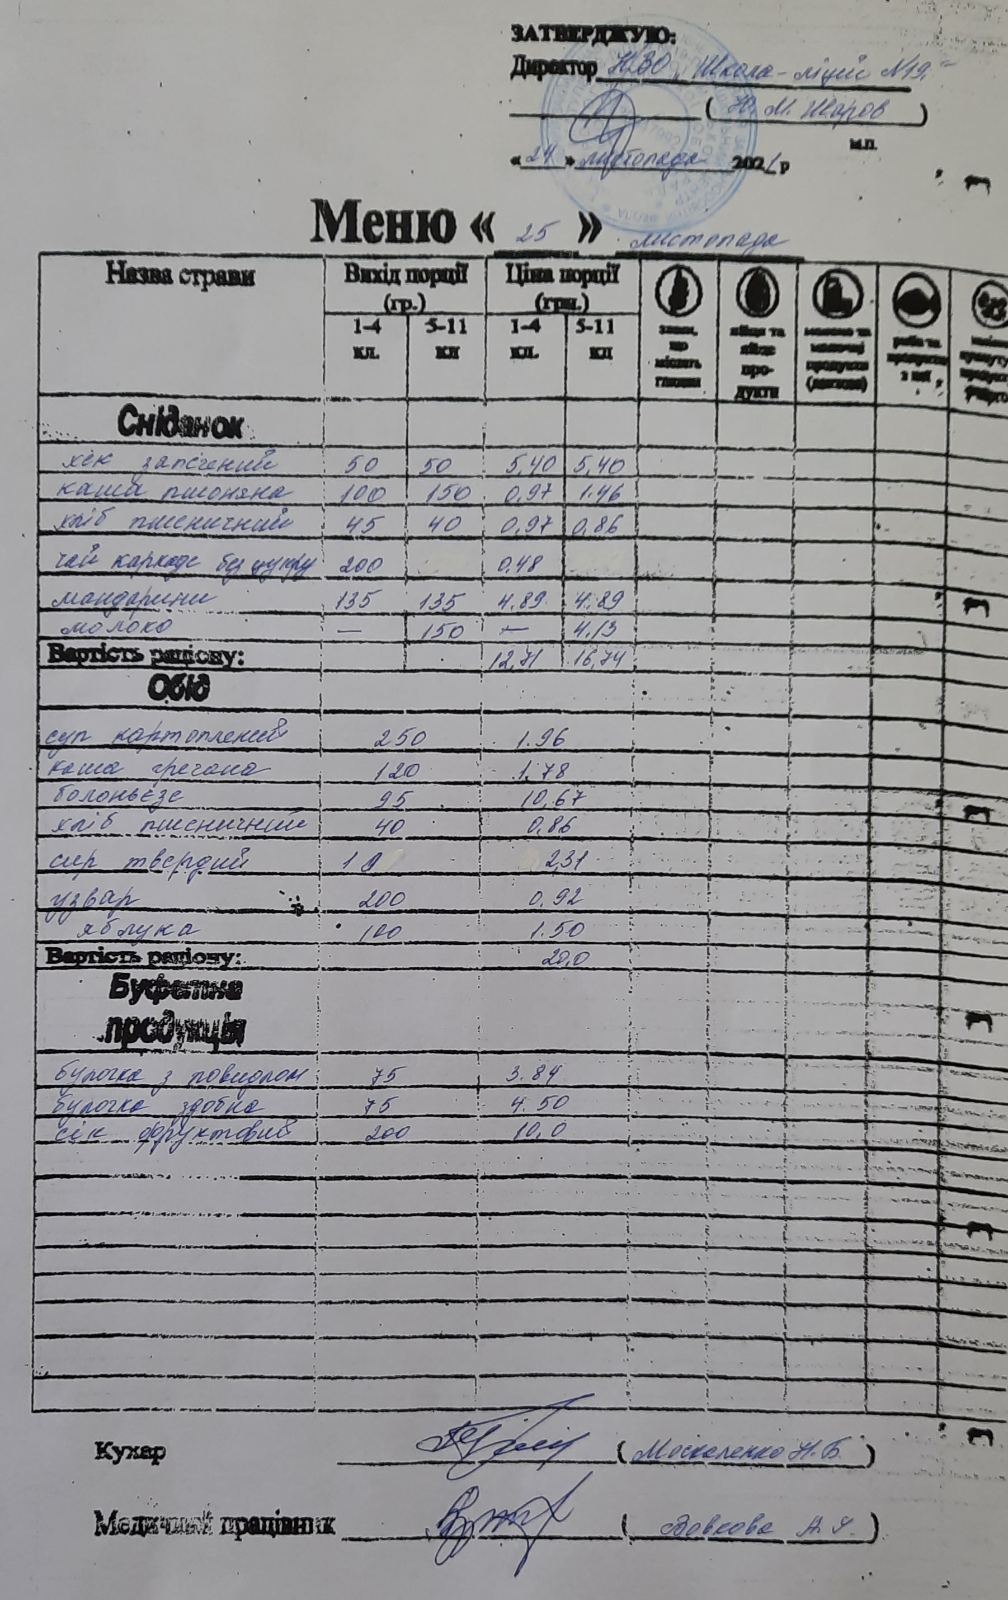 ЗАТВЕРДЖУЮ:
Директор НВО "Школа-ліцей №19"
(Н. М. Жаров)
М.П.
« 24 » листопада 2021 р
Меню « 25 » листопада
Назва страви Вихід порції (гр.) Ціна порції (грн.)
1-4 кл. 5-11 кл 1-4 кл. 5-11 кл
злаки, що містять глютен
яйця та яйце продукти
молоко та молочні продукти (лактоза)
риба та продукти з неї
Сніданок
хек запечений 50 50 5,40 5,40
каша пшоняна 100 150 0,97 1.46
хліб пшеничний 45 40 0,97 0,86
чай каркаде без цукру 200 0,48
мандарини 135 135 4.89 4.89
молоко — 150 — 4.13
Вартість раціону: 12,71 16,74
Обід
суп картопляний 250 1.96
каша гречана 120 1.78
болоньєзе 95 10,67
хліб пшеничний 40 0,86
сир твердий 10 2,31
узвар 200 0,92
яблука 100 1.50
Вартість раціону: 20,0
Буфетна
продукція
булочка з повидлом 75 3.84
булочка здобна 75 4.50
сік фруктовий 200 10,0
Кухар (Москаленко Н. Б.)
Медичний працівник (Вовкова А. Я.)